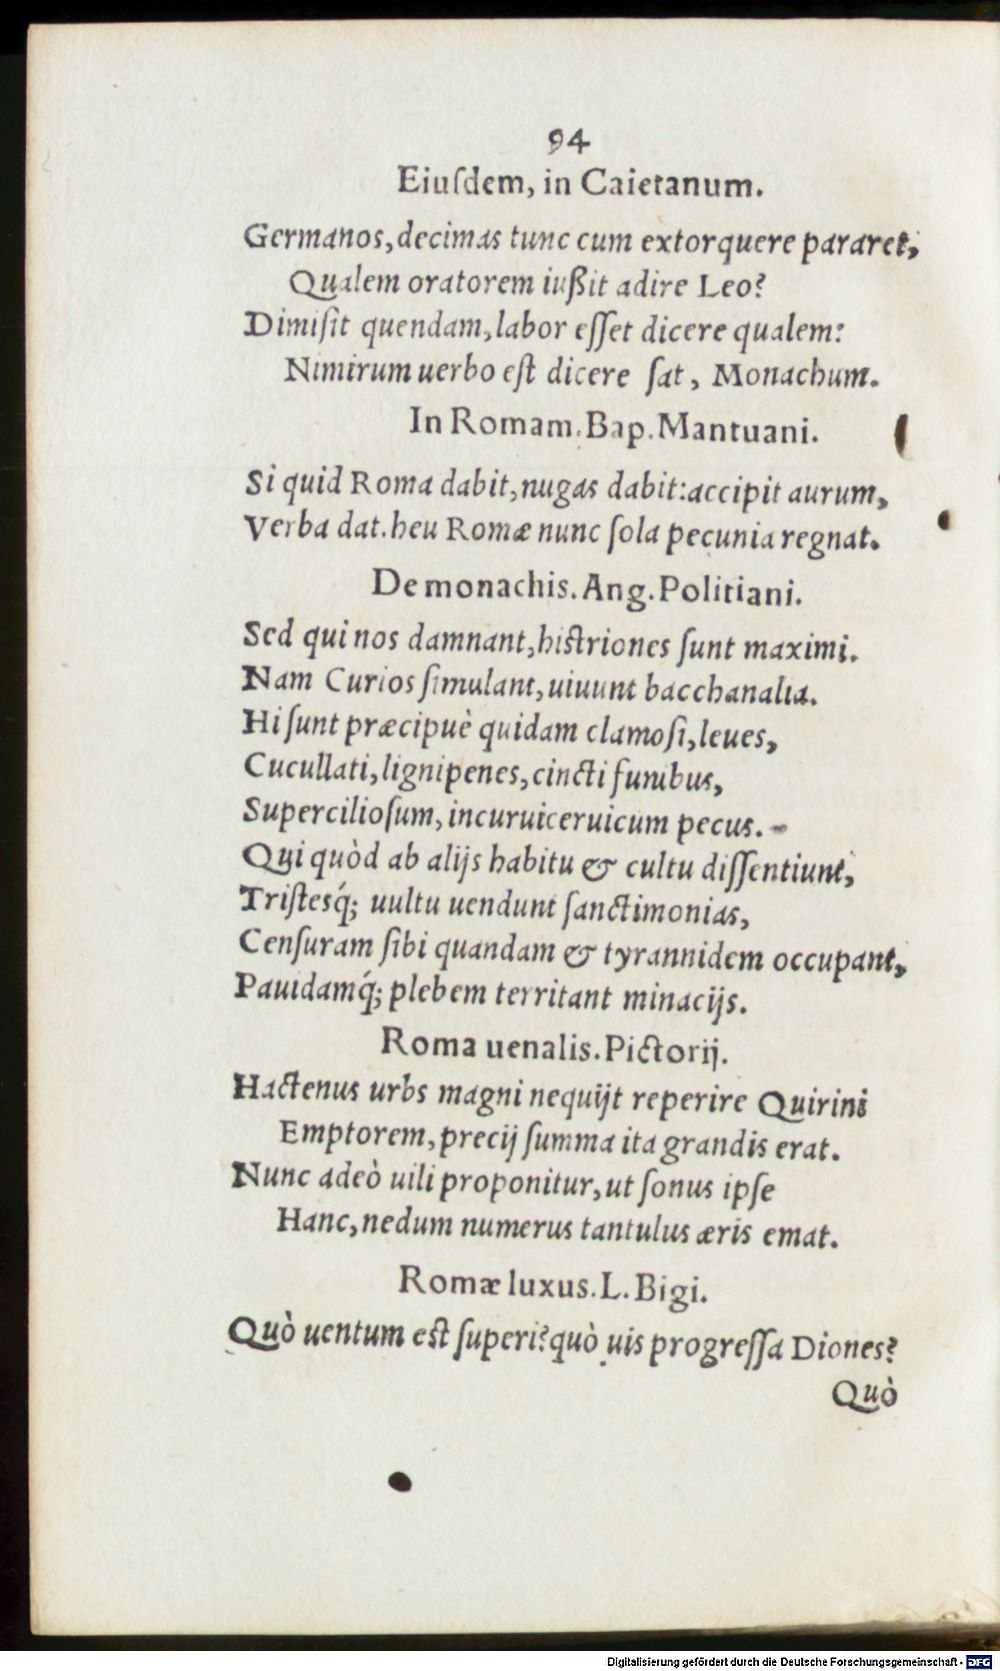 94
Eiuſdem, in Caietanum.
Germanos, decimas tunc cum extorquere pararet,
Qualem oratorem iußit adire Leo?
Dimiſit quendam, labor eſſet dicere qualem:
Nimirum uerbo eſt dicere ſat, Monachum.
In Romam. Bap. Mantuani.
Si quid Roma dabit, nugas dabit: accipit aurum,
Verba dat. heu Romæ nunc ſola pecunia regnat.
De monachis. Ang. Politiani.
Sed qui nos damnant, hiſtriones ſunt maximi.
Nam Curios ſimulant, uiuunt bacchanalia.
Hi ſunt præcipuè quidam clamoſi, leues,
Cucullati, lignipenes, cincti funibus,
Supercilioſum, incuruiceruicum pecus.
Qui quòd ab alijs habitu & cultu diſſentiunt,
Triſtesq́; uultu uendunt ſanctimonias,
Cenſuram ſibi quandam & tyrannidem occupant,
Pauidamq́; plebem territant minacijs.
Roma uenalis. Pictorij.
Hactenus urbs magni nequijt reperire Quirini
Emptorem, precij ſumma ita grandis erat.
Nunc adeò uili proponitur, ut ſonus ipſe
Hanc, nedum numerus tantulus æris emat.
Romæ luxus. L. Bigi.
Quò uentum eſt ſuperi? quò uis progreſſa Diones?
Quò
Digitalisierung gefördert durch die Deutsche Forschungsgemeinschaft - DFG